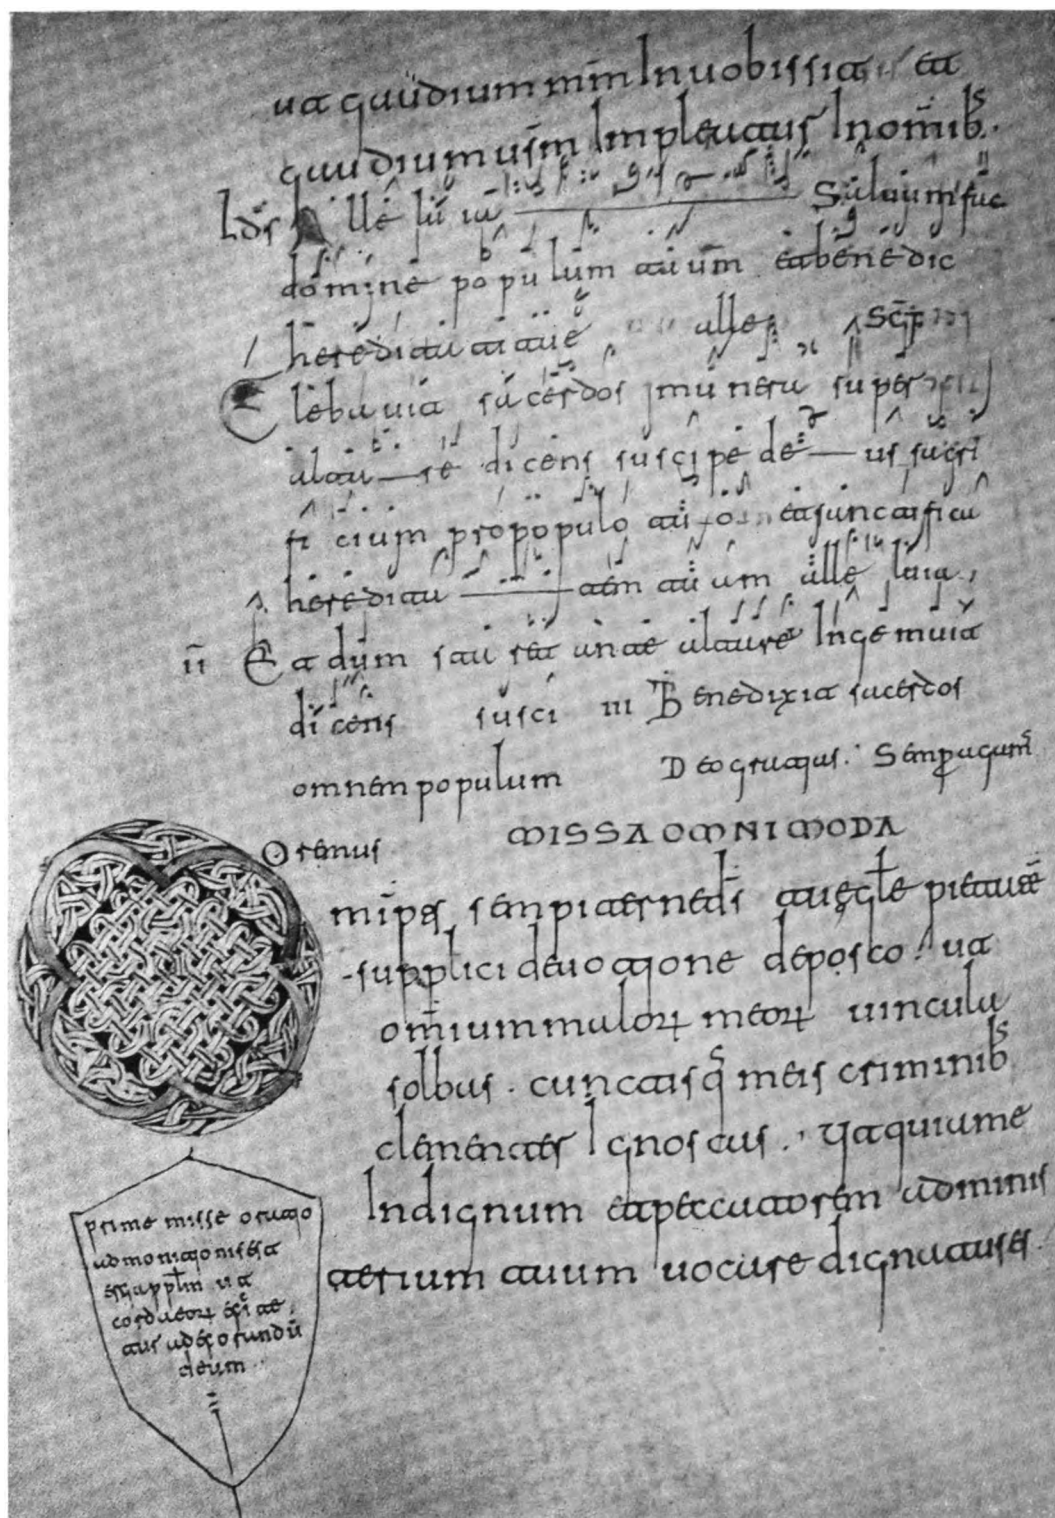 ut gaudium mm In uobis sit et
gaudium usm Impleatur In omibs.
lds Alleluia Saluum fac
domine populum tuum et benedic
hereditati tue alle
Elebauit sacerdos munera super
altare dicens suscipe deus sacri
ficium pro populo tuo et sanctifica
hereditatem tuam alleluia
II Et dum staret ante altare Ingemuit
dicens susci III Benedixit sacerdos
omnem populum Deo gratias. Semp agams
Oremus MISSA OMNIMODA
mips sempiterne ds tue gle pietate
supplici deuotione deposco. ut
omium malorꝝ meorꝝ uincula
solbas. cunctisq meis criminibs
clementer Ignoscas. Ut qui me
Indignum et peccatorem ad minis
terium tuum uocare dignatus es.
prime misse oratio
admonitionis est
erga pplm ut
corda eorꝝ
tur ad exorandu
deum